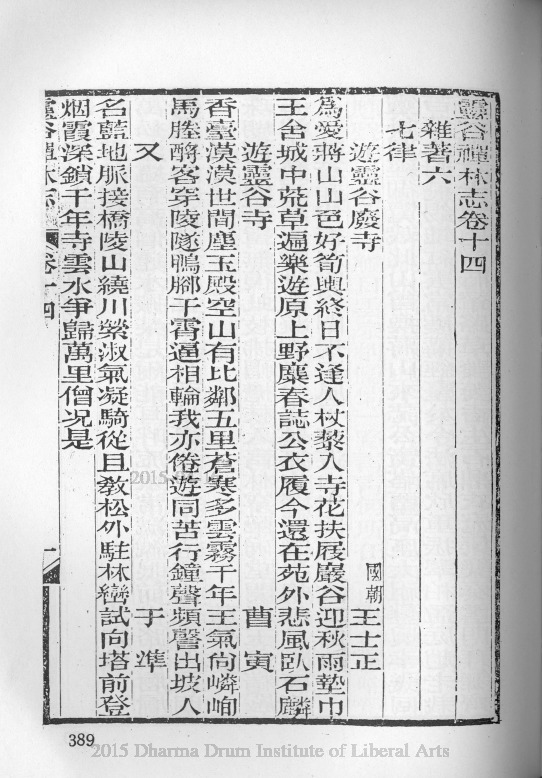 靈谷禪林志卷十四
雜著六
七律
遊靈谷廢寺 國朝 王士正
為愛蔣山山色好筍輿終日不逢人杖藜入寺花扶屐巖谷迎秋雨墊巾
王舍城中荒草遍樂遊原上野麋春誌公衣履今還在苑外悲風臥石麟
遊靈谷寺 曹寅
香臺漠漠世間塵玉殿空山有比鄰五里蒼寒多雲霧千年王氣尙嶙峋
馬塍醻客穿陵隧鴨腳干霄逼相輪我亦倦遊同苦行鐘聲頻聲出坡人
又 于準
名藍地脈接橋陵山繞川縈淑氣凝騎從且敎松外駐林巒試向塔前登
烟霞深鎖千年寺雲水爭歸萬里僧況是
靈谷禪林志 卷十四 一
389
2015
2015 Dharma Drum Institute of Liberal Arts